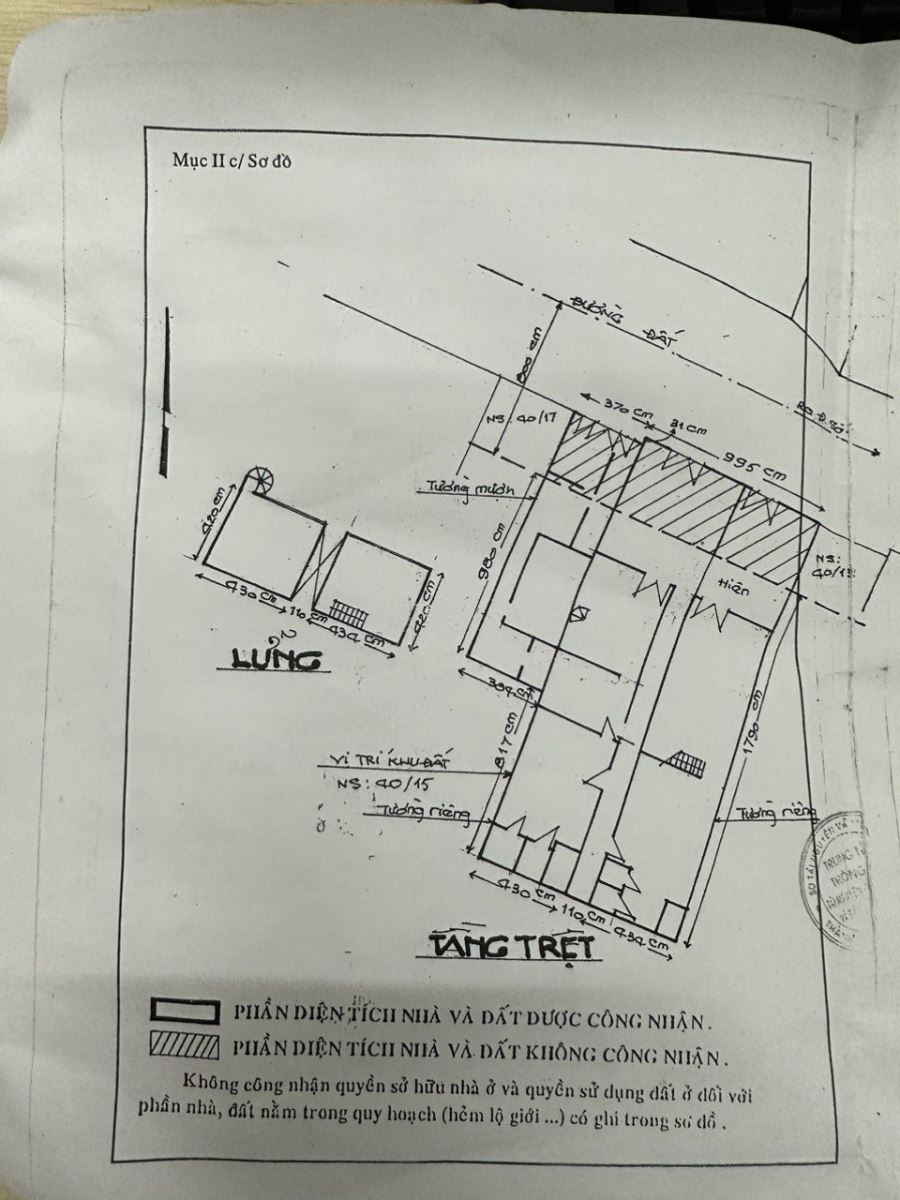 Mục II c/ Sơ đồ
ĐƯỜNG ĐẤT
RA Đ.SỐ
600 cm
370 cm
31 cm
995 cm
NS: 40/17
Tường mượn
NS:
40/13
Hiên
420 cm
430 cm
110 cm
434 cm
420 cm
LỬNG
980 cm
384 cm
817 cm
1790 cm
VỊ TRÍ KHU ĐẤT
NS: 40/15
Tường riêng
Tường riêng
430 cm
110 cm
434 cm
TẦNG TRỆT
SỞ TÀI NGUYÊN
TRUNG TÂ
THÔNG
TÀI NGUYÊN
PHẦN DIỆN TÍCH NHÀ VÀ ĐẤT ĐƯỢC CÔNG NHẬN.
PHẦN DIỆN TÍCH NHÀ VÀ ĐẤT KHÔNG CÔNG NHẬN.
Không công nhận quyền sở hữu nhà ở và quyền sử dụng đất ở đối với
phần nhà, đất nằm trong quy hoạch (hẻm lộ giới ...) có ghi trong sơ đồ .